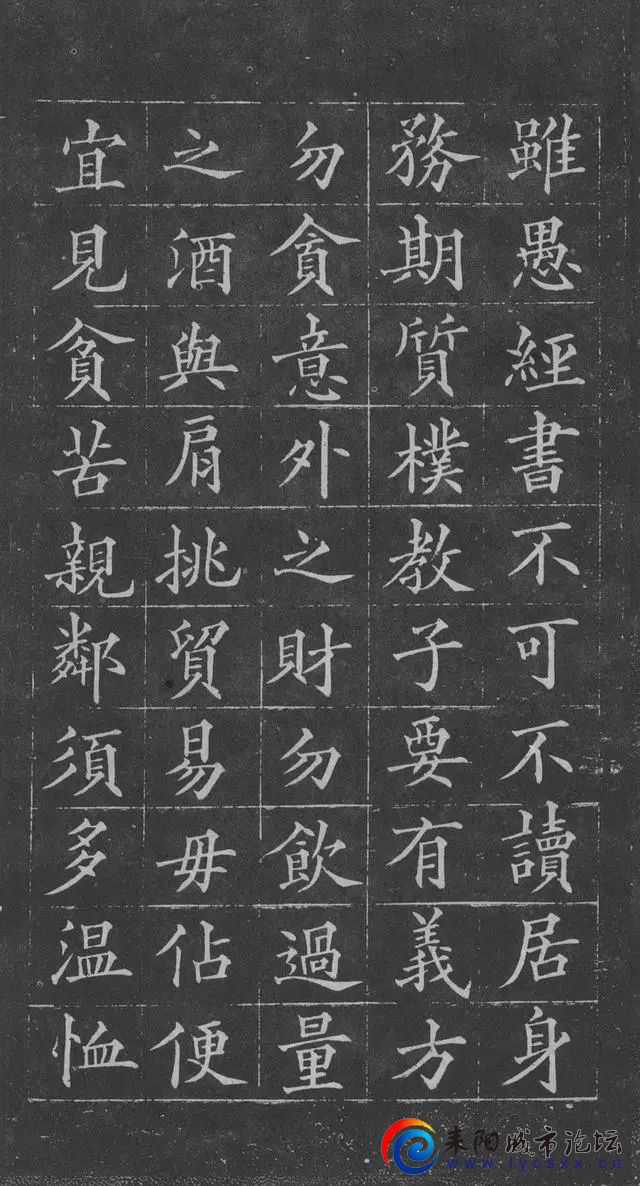 雖愚經書不可不讀居身
務期質樸教子要有義方
勿貪意外之財勿飲過量
之酒與肩挑貿易毋佔便
宜見貧苦親鄰須多温恤
耒阳城市论坛
www.lycsxx.cn